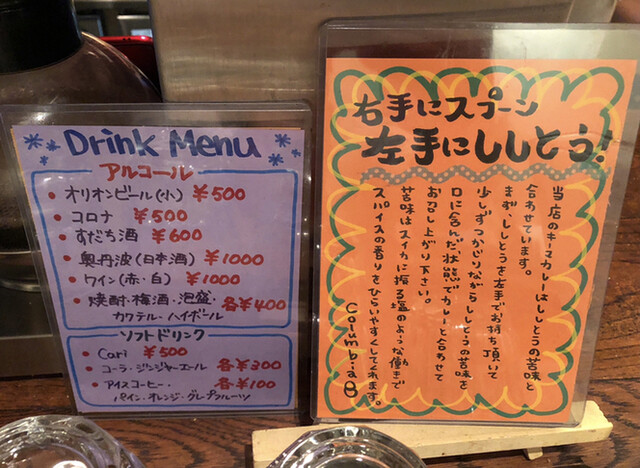 Drink Menu
アルコール
・オリオンビール(小) ¥500
・コロナ ¥500
・すだち酒 ¥600
・奥丹波(日本酒) ¥1000
・ワイン(赤・白) ¥1000
・焼酎・梅酒・泡盛・ 各¥400
カクテル・ハイボール
ソフトドリンク
・Cari ¥500
・コーラ・ジンジャーエール 各¥300
・アイスコーヒー・ 各¥100
パイン・オレンジ・グレープフルーツ
右手にスプーン
左手にししとう!
当店のキーマカレーはししとうの苦味と
合わせています。
まず、ししとうを左手でお持ち頂いて
少しずつかじりながらししとうの苦味を
口に含んだ状態でカレーと合わせて
お召し上がり下さい。
苦味はスイカに振る塩のような働きで
スパイスの香りをひらいやすくしてくれます。
Columbia8